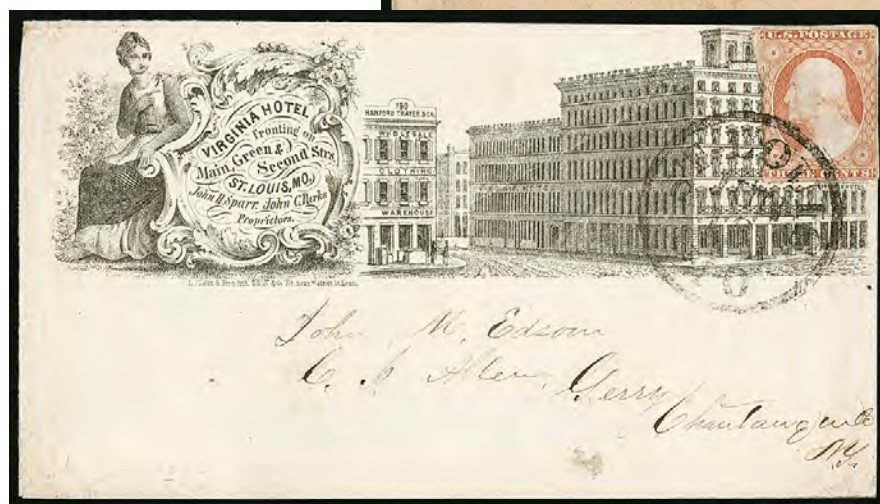 VIRGINIA HOTEL
fronting on
Main, Green &
Second Strs
ST. LOUIS, MO.
John H. Sparr, John C. Parks
Proprietors.
190
HANFORD THAYER & CO.
WHOLESALE
CLOTHING
WAREHOUSE
U.S. POSTAGE
THREE CENTS
John M. Edson
Gerry
Chautauque
NY.